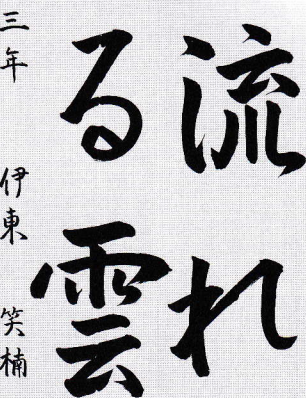 流れ
る雲
三年 伊東 笑楠